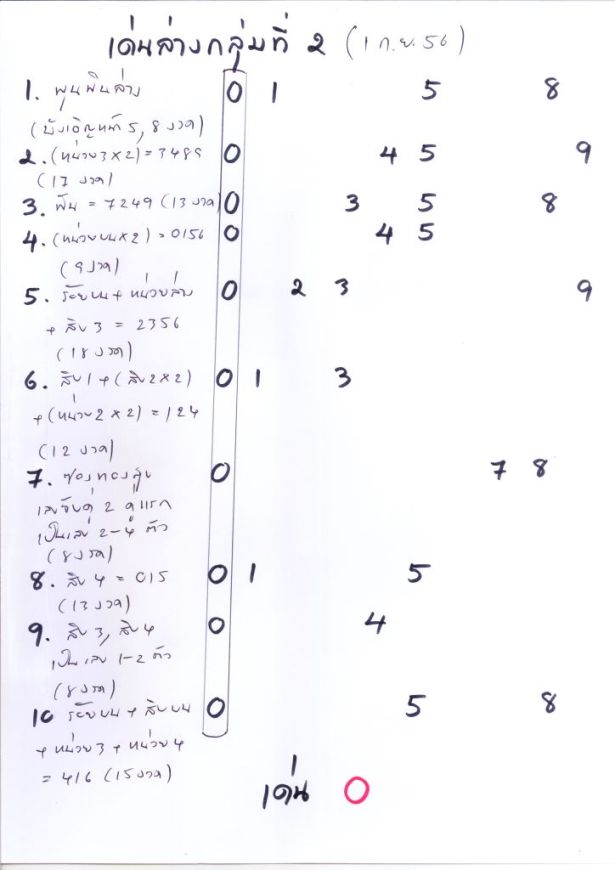 เด่นล่างกลุ่มที่ 2 (1 ก.ย. 56)
1. พูนพินล่าง 0 1 5 8
(บังเอิญหน้า 5, 8 งวด)
2. (หน่วย3x2) = 3489 0 4 5 9
(17 งวด)
3. พัน = 7249 (13 งวด) 0 3 5 8
4. (หน่วยบนx2) = 0156 0 4 5
(9 งวด)
5. ร้อยบน + หน่วยล่าง 0 2 3 9
+ สิบ 3 = 2356
(18 งวด)
6. สิบ1 + (สิบ2x2) 0 1 3
+ (หน่วย2x2) = 124
(12 งวด)
7. ซองทอง 0 7 8
เลขจับคู่ 2 คู่แรก
เป็นเลข 2-4 ตัว
(8 งวด)
8. สิบ 4 = 015 0 1 5
(13 งวด)
9. สิบ 3, สิบ 4 0 4
เป็นเลข 1-2 ตัว
(8 งวด)
10 ร้อยบน + สิบบน 0 5 8
+ หน่วย3 + หน่วย4
= 416 (15 งวด)
เด่น 0